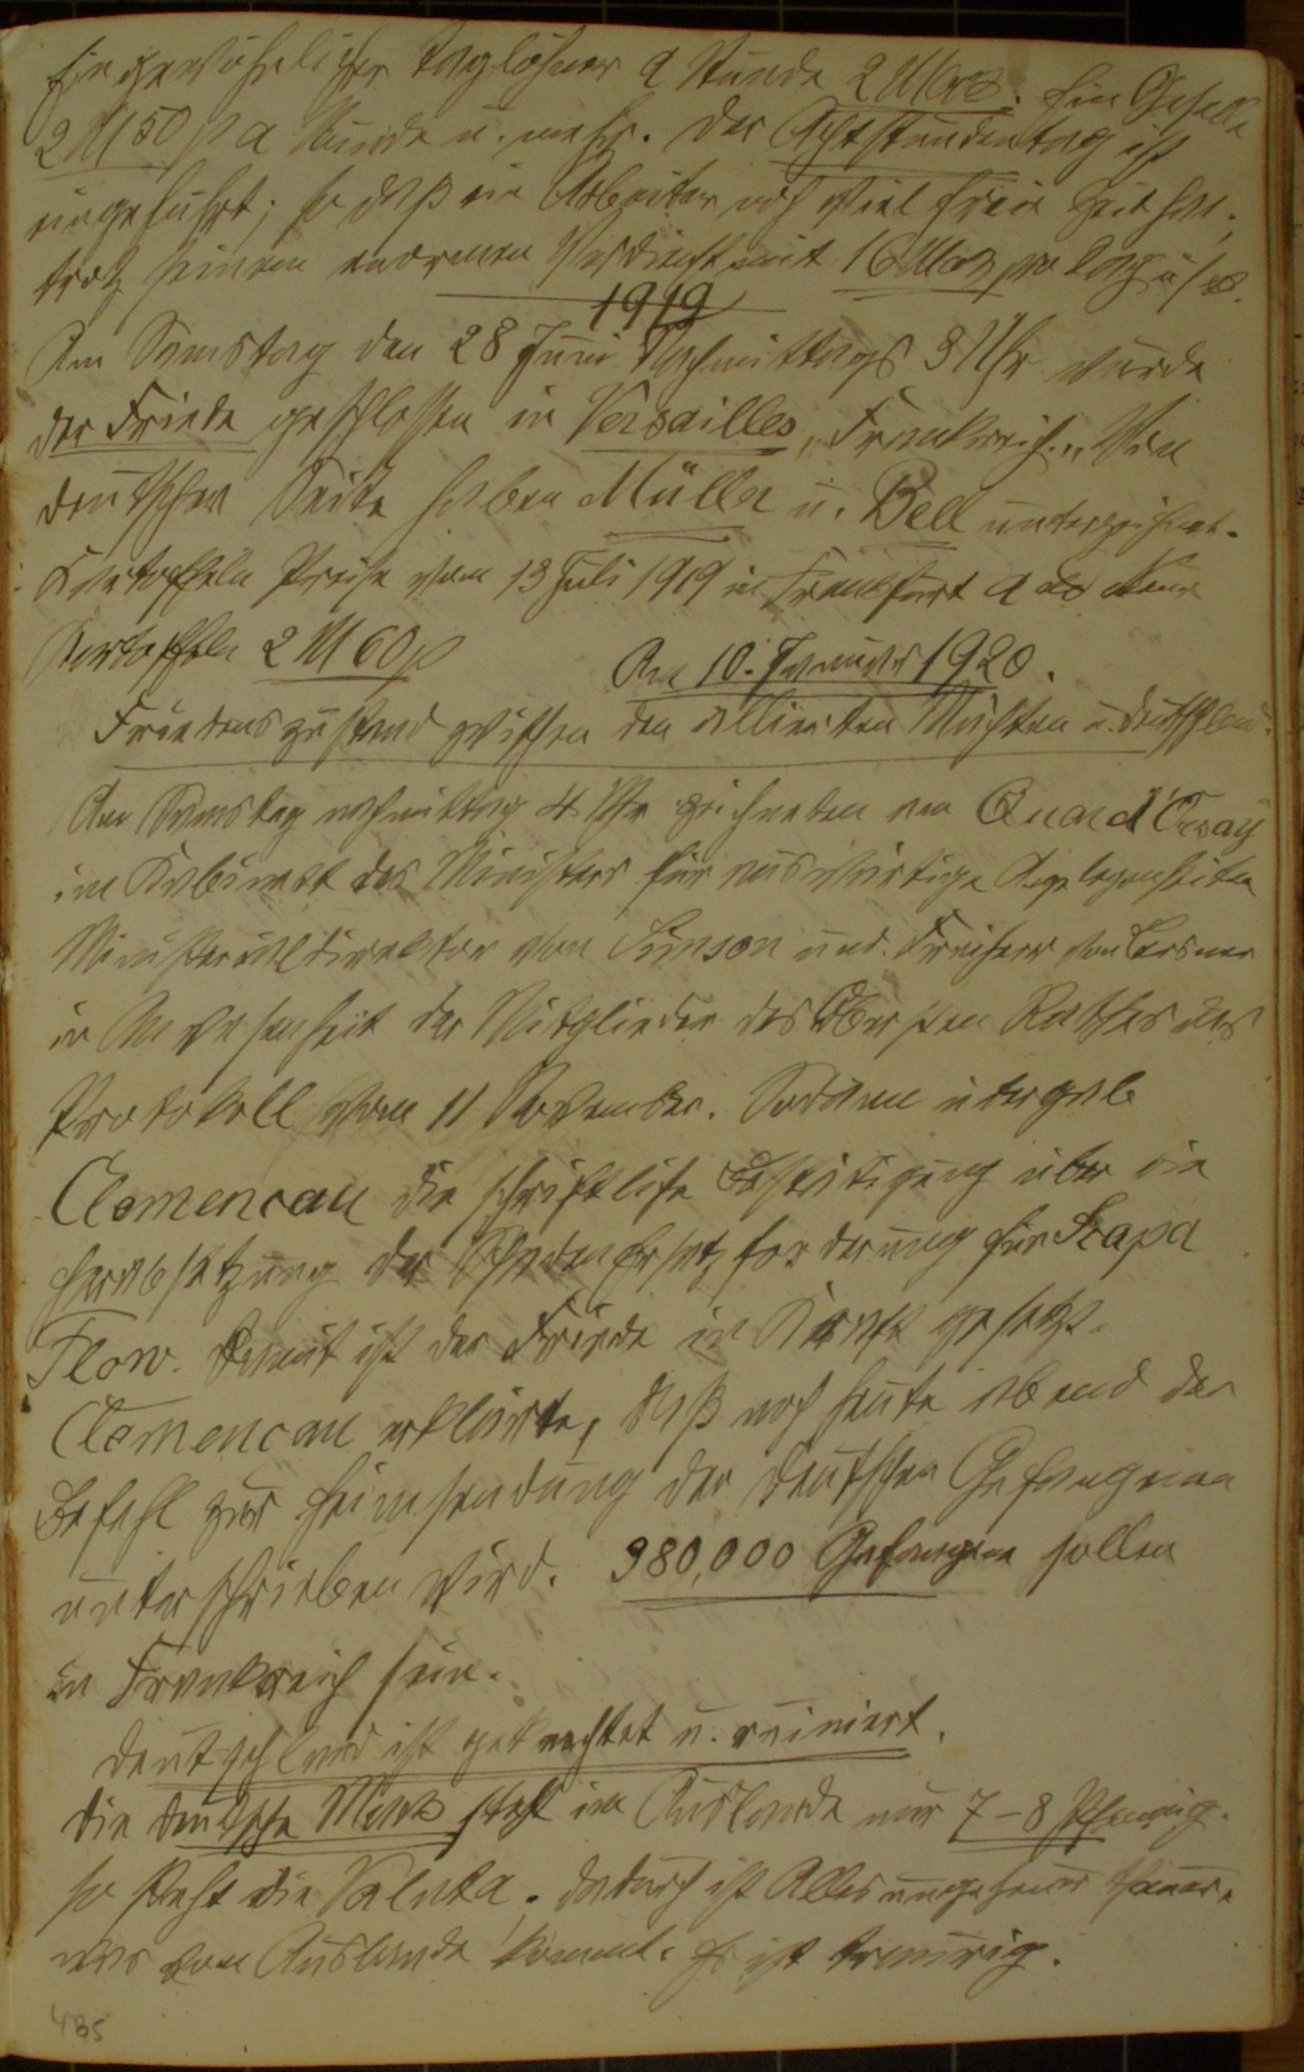 Ein gewöhnlicher Taglöhner a Stunde 2 Mark. Ein Geselle
2 M 50 p a Stunde u. mehr. Der Achtstundentag ist
eingeführt; so daß ein Arbeiter noch viel freie Zeit hat,
trotz seinem enormen Verdienst mit 16 Mark pro Tag u/s.
1919
Am Samstag den 28 Juni Nachmittags 3 Uhr wurde
der Friede geschlossen in Versailles „Frankreich.„ Von
deutscher Seite haben Müller u. Bell unterzeichnet.
Kartoffeln Preise vom 13 Juli 1919 in Frankfurt a
Kartoffeln 2 M 60 p
Am 10. Januar 1920.
Friedenszustand zwischen den alliierten Mächten u. Deutschland.
Am Samstag nachmittag 4 Uhr zeichneten am Quai d'Orsay
im Kabinett des Ministers für auswärtige Angelegenheiten
Ministerialdirektor von Simson und Freiherr von Lersner
in Anwesenheit der Mitglieder des Obersten Rathes das
Protokoll vom 11 November. Sodann übergab
Clemencau die schriftliche Bestätigung über die
Herabsetzung der Schadenersatzforderung für Skapa
Flow. Damit ist der Friede in Kraft gesetzt.
Clemencau erklärte, daß noch heute abend der
Befehl zur Heimsendung der deutschen Gefangenen
unterschrieben wird. 380,000 Gefangene sollen
in Frankreich sein.
Deutschland ist geknechtet u. ruiniert.
Die deutsche Mark steht im Auslande nur 7–8 Pfennig.
so steht die Valuta. Dadurch ist Alles ungeheuer theuer,
was vom Auslande kommt. Es ist traurig.
435